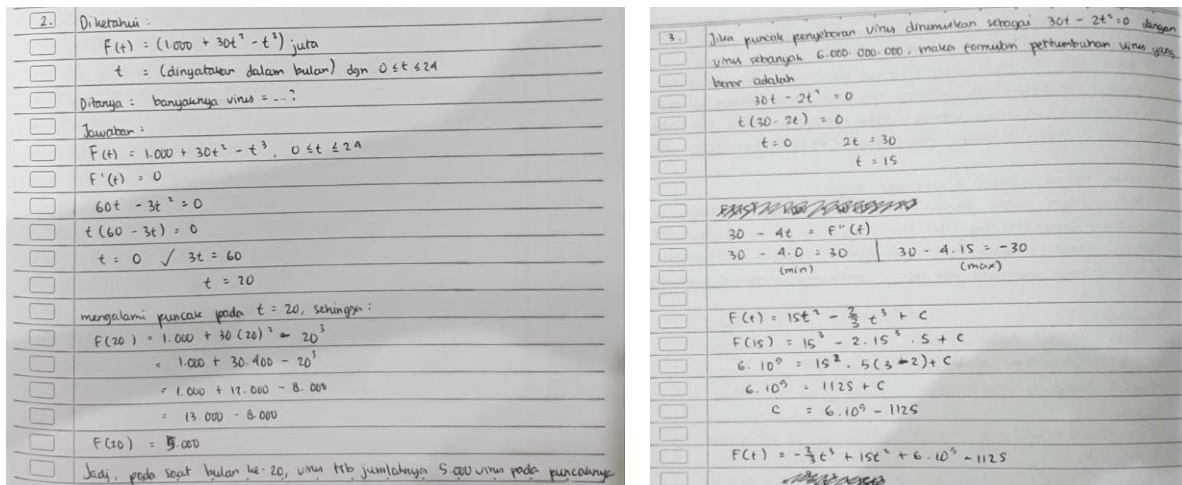 2.
Diketahui :
F(t) = (1.000 + 30t² - t³) juta
t = (dinyatakan dalam bulan) dgn 0 ≤ t ≤ 24
Ditanya : banyaknya virus = ... ?
Jawaban :
F(t) = 1.000 + 30t² - t³, 0 ≤ t ≤ 24
F'(t) = 0
60t - 3t² = 0
t (60 - 3t) = 0
t = 0 √ 3t = 60
t = 20
mengalami puncak pada t = 20, sehingga :
F(20) = 1.000 + 30 (20)² - 20³
= 1.000 + 30.400 - 20³
= 1.000 + 12.000 - 8.000
= 13.000 - 8.000
F(20) = 5.000
Jadi, pada saat bulan ke-20, virus tsb jumlahnya 5.000 virus pada puncaknya
3.
Jika puncak penyebaran virus dirumuskan sebagai 30t - 2t² = 0 dengan
virus sebanyak 6.000.000.000, maka formulasi pertumbuhan virus yang
benar adalah
30t - 2t² = 0
t (30 - 2t) = 0
t = 0 2t = 30
t = 15
30 - 4t = F"(t)
30 - 4.0 = 30 | 30 - 4.15 = -30
(min) (max)
F(t) = 15t² - ⅔ t³ + C
F(15) = 15³ - 2.15² . 5 + C
6.10⁹ = 15² . 5(3-2) + C
6.10⁹ = 1125 + C
C = 6.10⁹ - 1125
F(t) = -⅔ t³ + 15t² + 6.10⁹ - 1125